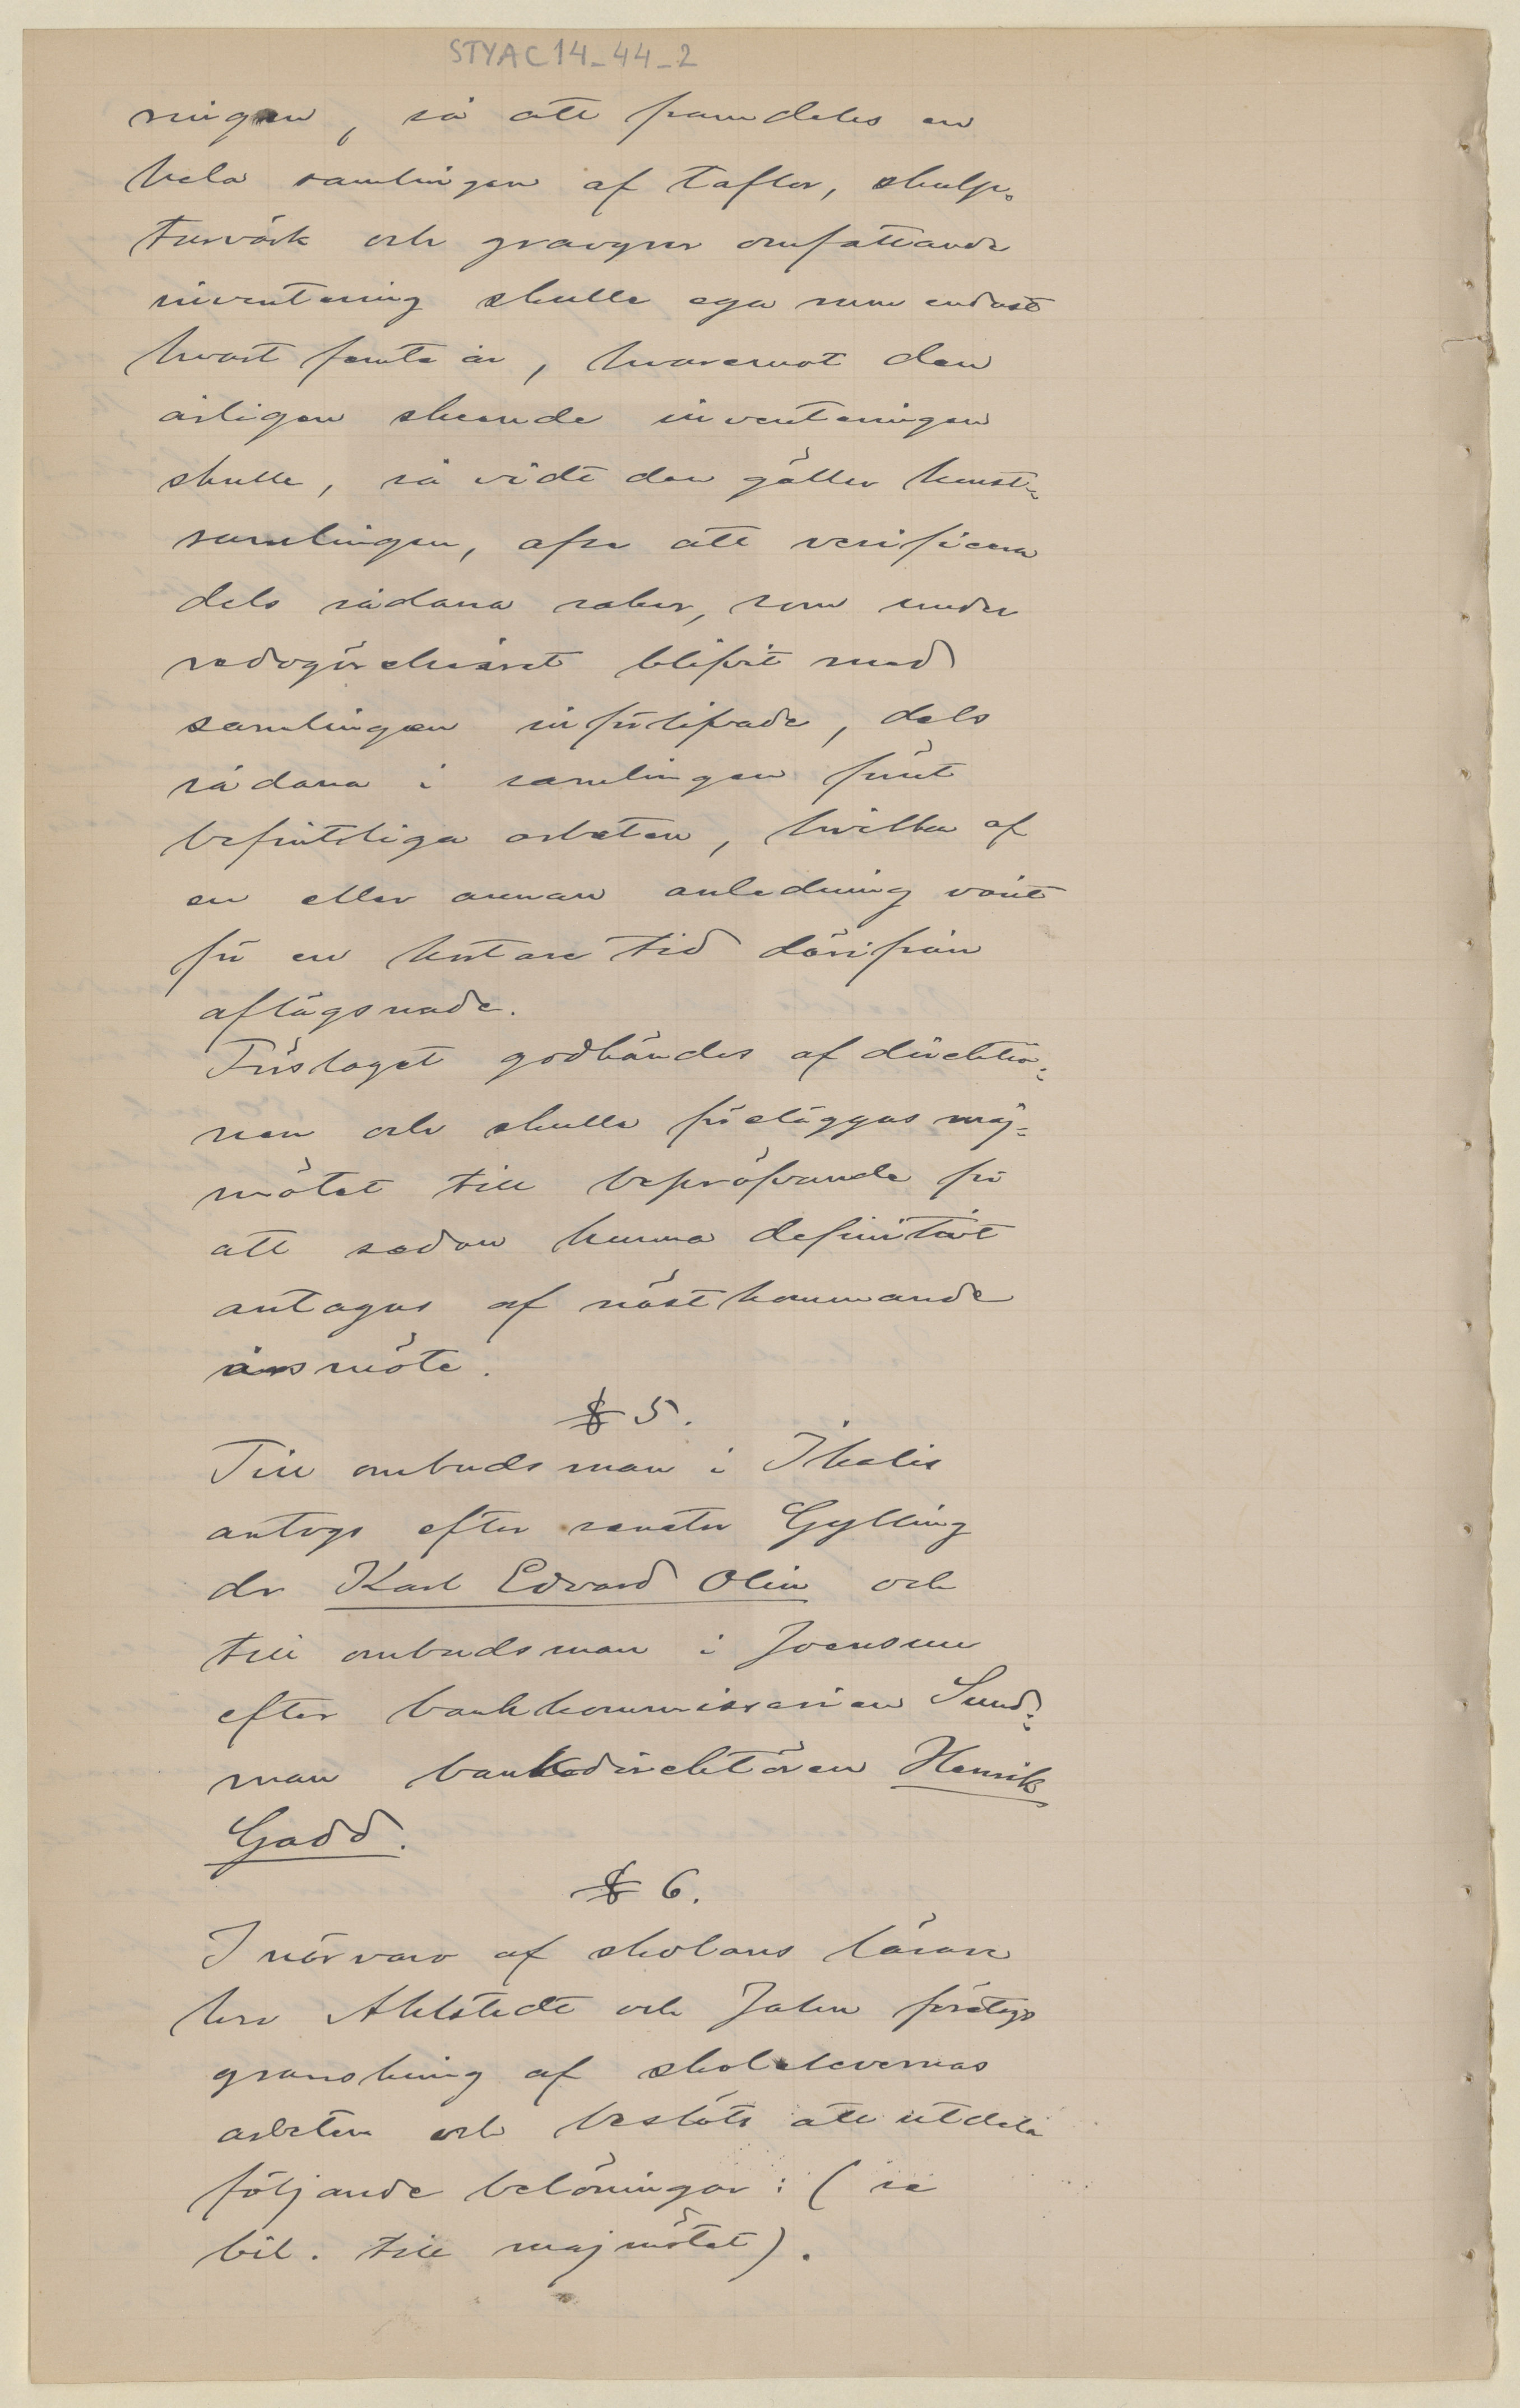 STYAC14_44_2
ningen, så att framdeles en
hela samlingen af taflor, skulp-
turvärk och gravyrer omfattande
inventering skulle ega rum endast
hvart femte år, hvaremot den
årligen skeende inventeringen
skulle, så vidt den gäller konst-
samlingen, afse att verificera
dels sådana saker, som under
redogörelseåret blifvit med
samlingen införlifvade, dels
sådana i samlingen förut
befintliga arbeten, hvilka af
en eller annan anledning varit
för en kortare tid därifrån
aflägsnade.
Förslaget godkändes af direktio-
nen och skulle föreläggas maj-
mötet till bepröfvande för
att sedan kunna definitivt
antagas af nästkommande
årsmöte.
§ 5.
Till ombudsman i Ikalis
antogs efter senator Gylling
dr Karl Edvard Olin och
till ombudsman i Joensuu
efter bankkommissarien Sund-
man bankdirektören Henrik
Gadd.
§ 6.
I närvaro af skolans lärare
hrr Ahlstedt och Jahn företogs
granskning af skolelevernas
arbeten och beslöts att utdela
följande belöningar: (se
bil. till majmötet).